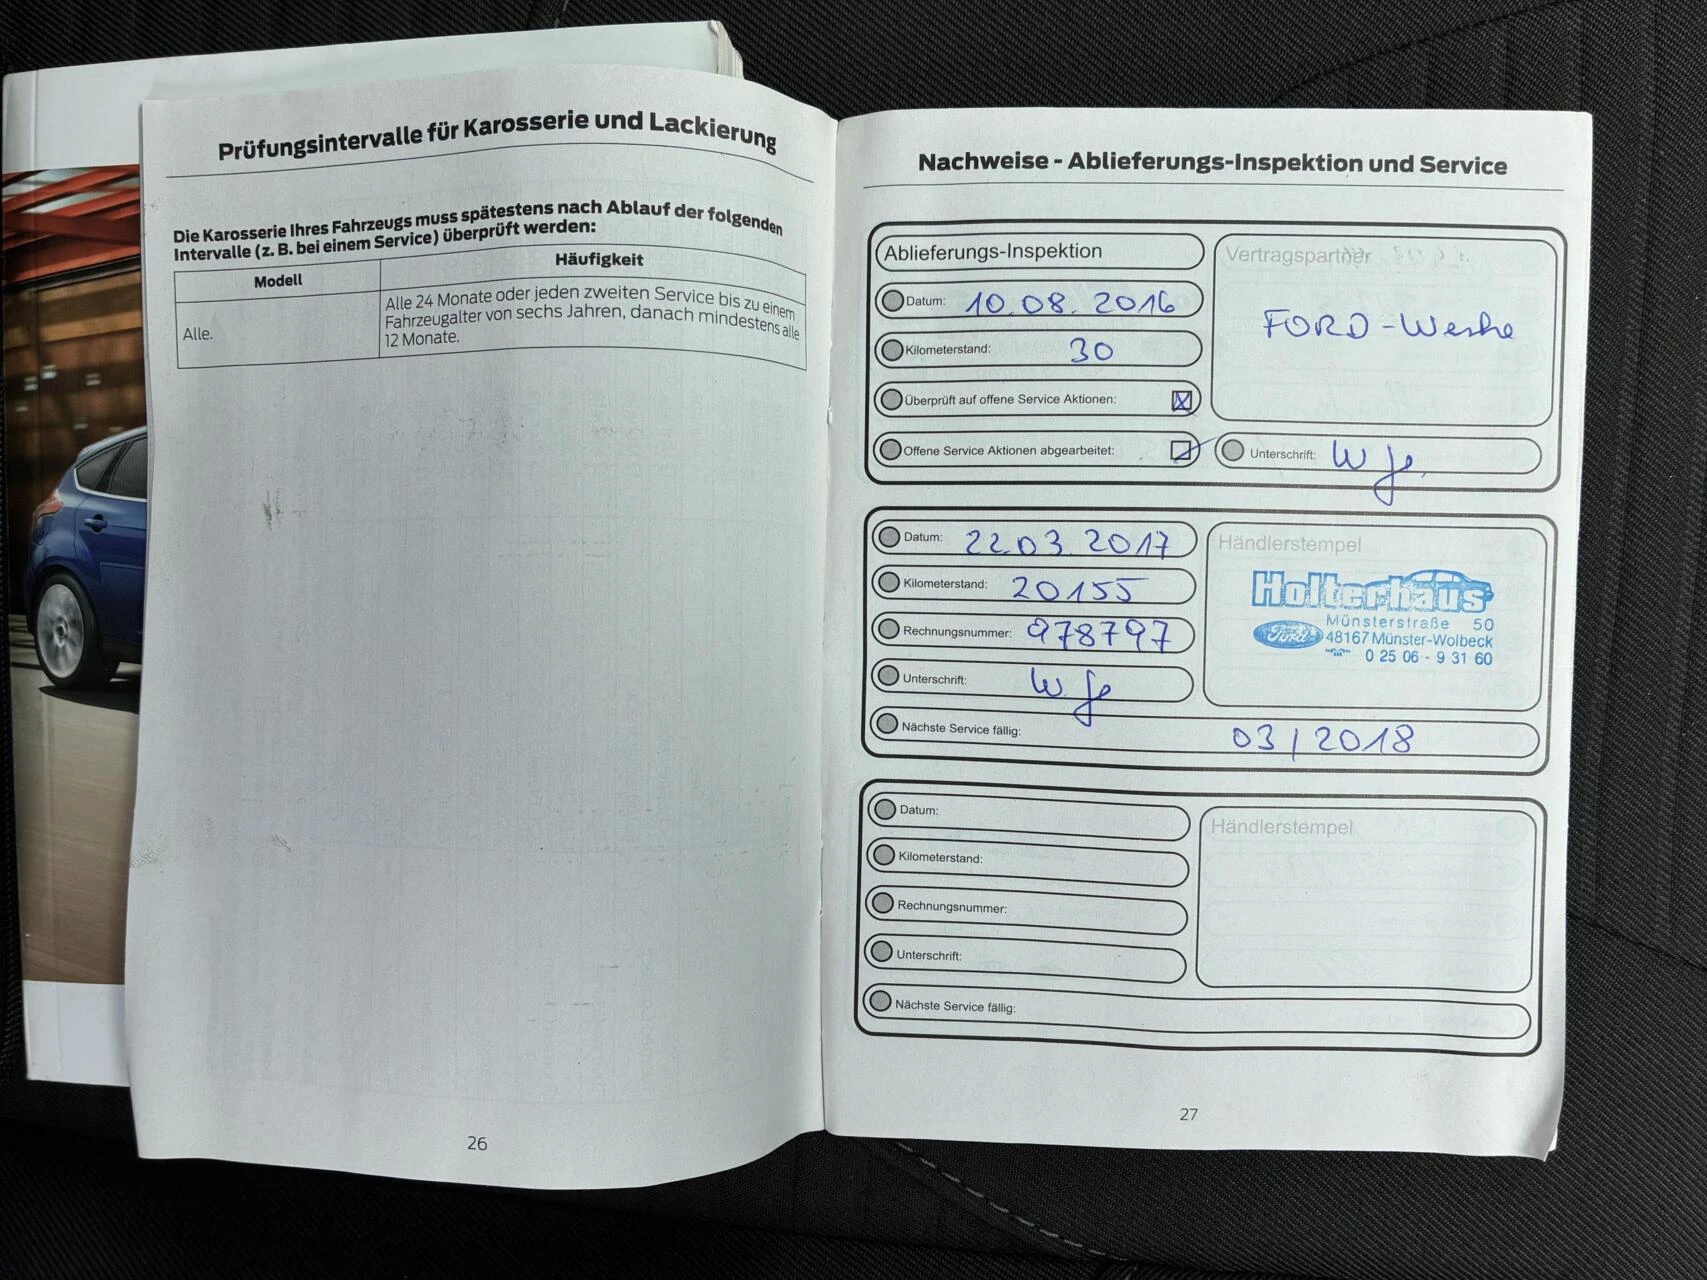 Prüfungsintervalle für Karosserie und Lackierung
Die Karosserie Ihres Fahrzeugs muss spätestens nach Ablauf der folgenden
Intervalle (z. B. bei einem Service) überprüft werden:
Modell
Häufigkeit
Alle.
Alle 24 Monate oder jeden zweiten Service bis zu einem
Fahrzeugalter von sechs Jahren, danach mindestens alle
12 Monate.
26
Nachweise - Ablieferungs-Inspektion und Service
Ablieferungs-Inspektion
Datum: 10.08.2016
Kilometerstand: 30
Überprüft auf offene Service Aktionen:
Offene Service Aktionen abgearbeitet:
Vertragspartner
FORD-Werke
Unterschrift:
Datum: 22.03.2017
Kilometerstand: 20155
Rechnungsnummer: 978797
Unterschrift:
Nächste Service fällig: 03/2018
Händlerstempel
Holterhaus
Münsterstraße 50
Ford 48167 Münster-Wolbeck
0 25 06 - 9 31 60
Datum:
Kilometerstand:
Rechnungsnummer:
Unterschrift:
Nächste Service fällig:
Händlerstempel
27